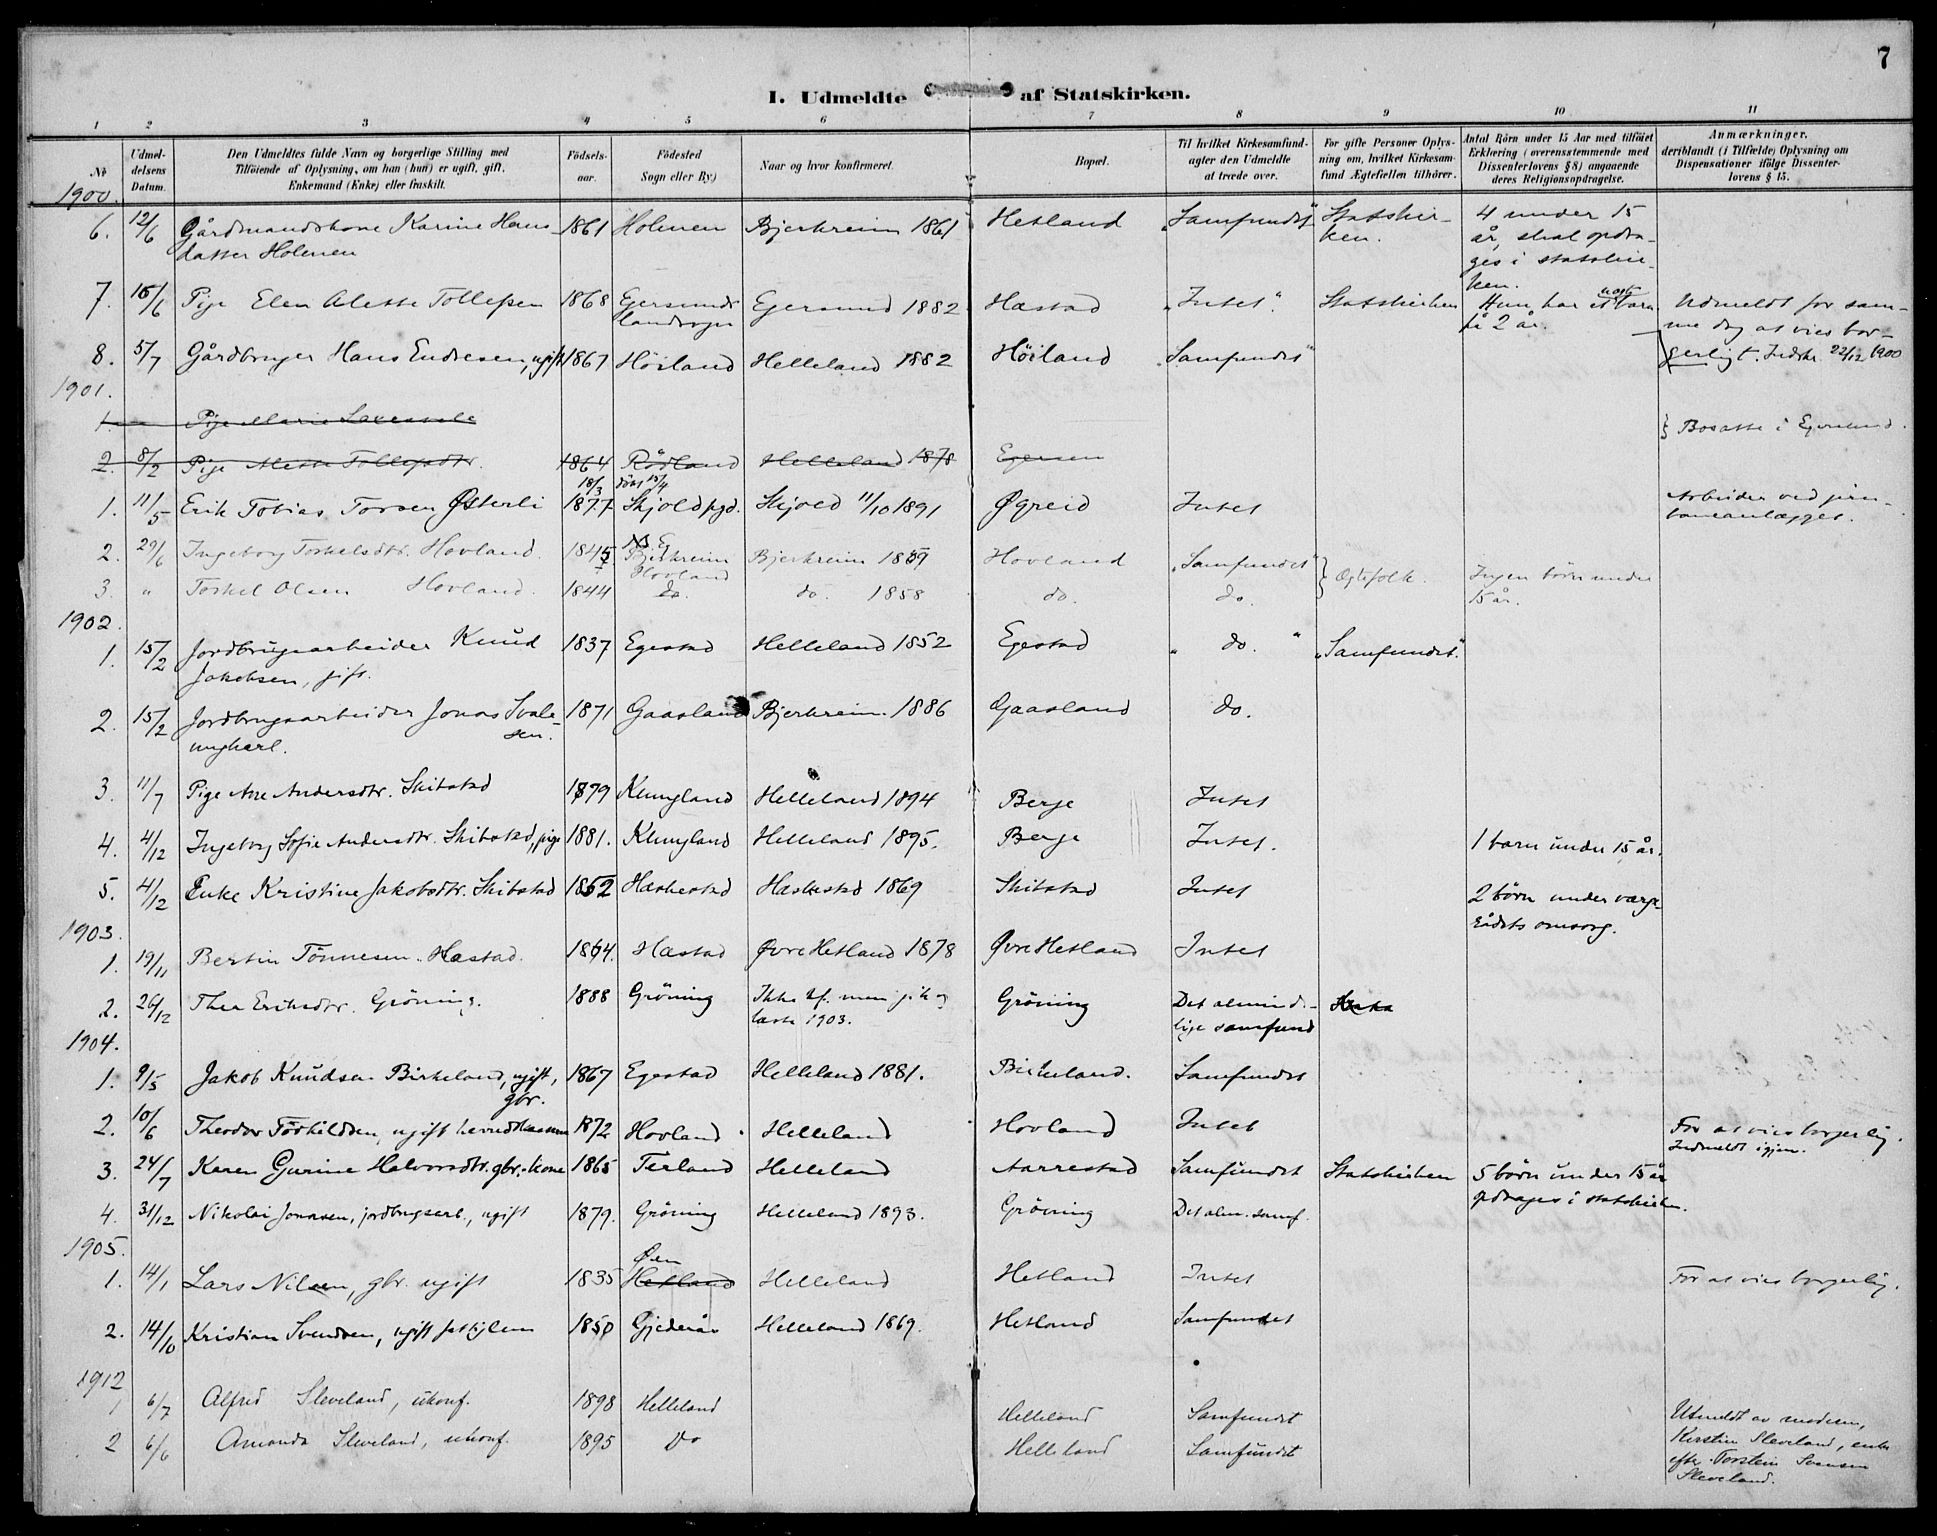 7
I. Udmeldte af Statskirken.
1 2 3 4 5 6 7 8 9 10 11
№ | Udmeldelsens Datum. | Den Udmeldtes fulde Navn og borgerlige Stilling med Tilføiende af Oplysning, om han (hun) er ugift, gift, Enkemand (Enke) eller fraskilt. | Fødselsaar. | Fødested Sogn eller By) | Naar og hvor konfirmeret. | Bopæl. | Til hvilket Kirkesamfund agter den Udmeldte at træde over. | For gifte Personer Oplysning om, hvilket Kirkesamfund Ægtefællen tilhører. | Antal Børn under 15 Aar med tilføiet Erklæring (overensstemmende med Dissenterlovens § 8) angaaende deres Religionsopdragelse. | Anmærkninger, deriblandt (i Tilfælde) Oplysning om Dispensationer ifølge Dissenterlovens § 15.
1900.
6. 12/6 Gårdmandskone Karine Hans- 1861 Holmen Bjerkreim 1861 Hetland "Samfundet" Statskir- 4 under 15
datter Holmen ken. år, skal opdra-
ges i statskir-
ken.
7. 15/6 Pige Elen Alette Tollefsen 1868 Egersunds Egersund 1882 Hæstad "Intet". Statskirken Hun har et uægte barn Udmeldt for sam-
landsogn på 2 år. me dag at vies bor-
8. 5/7 Gårdbruger Hans Endresen, ugift 1867 Höiland Helleland 1882 Höiland "Samfundet" gerligt. Indskr. 22/12 1900
1901.
1. Pige Marie } Bosatte i Egersund.
2. 8/2 Pige Mette Tollefsdtr. 1864 Rödland Helleland 1878 Egersun
18/3 döbt 15/4
1. 11/5 Erik Tobias Torsen Østerli 1877 Skjold pgd. Skjold 11/10 1891 Øgreid Intet Arbeider ved jern-
baneanlægget.
2. 29/6 Ingeborg Torkelsdtr. Hovland. 1845 Bjerkreim Bjerkreim 1859 Hovland "Samfundet" } Ægtefolk. Ingen börn under
3. " Torkel Olsen Hovland. 1844 Hovland do. do. 1858 do. do. 15 år.
1902.
1. 15/2 Jordbrugsarbeider Knud 1837 Egestad Helleland 1852 Egestad " do. " "Samfundet."
Jakobsen, gift.
2. 15/2 Jordbrugsarbeider Jonas Svale- 1871 Gaasland Bjerkreim 1886 Gaasland do.
ungkarl. sen.
3. 11/7 Pige Ane Andersdtr. Skibstad 1879 Klungland Helleland 1894 Berge Intet
4. 4/12 Ingeborg Sofie Andersdtr. Skibstad, pige 1881. Klungland Helleland 1895. Berge Intet. 1 barn under 15 år.
5. 4/12 Enke Kristine Jakobsdtr. Skibstad 1852 Hæskestad Hæskestad 1869 Skibstad Intet 2 börn under værge-
rådets omsorg.
1903.
1. 19/11 Bertin Tönnesen Hæstad. 1864. Hæstad Øvre Hetland 1878 Øvre Hetland Intet
2. 26/12 Thea Eriksdtr. Gröning. 1888 Gröning Ikke kf. men gik og Gröning Det alminde-
læste 1903. lige samfund
1904.
1. 9/5 Jakob Knudsen Birkeland, ugift, 1867 Egestad Helleland 1881. Birkeland. Samfundet
gbr.
2. 10/6 Theodor Torkildsen, ugift 1872 Hovland Helleland Hovland Intet For at vies borgerlig.
Indmeldt igjen.
3. 24/7 Karen Gurine Halvorsdtr. gbr. kone 1865 Terland Helleland Aarrestad Samfundet Statskirken 5 börn under 15 år
opdrages i statskirken.
4. 31/12 Nikolai Jonasen, jordbrugsarb., ugift 1879. Gröning Helleland 1893. Gröning Det alm. samf.
1905.
Øen
1. 14/1 Lars Nilsen, gbr. ugift 1835 Hetland Helleland Hetland Intet For at vies borgerlig.
2. 14/10 Kristian Svendsen, ugift fattiglem 1850 Gjedeaas Helleland 1869. Hetland Samfundet
1912
1 6/7 Alfred Sleveland, ukonf. 1898 Helleland Helleland Samfundet Utmeldt av moderen,
2 6/6 Amanda Sleveland, ukonf. 1895 Do Helleland Samfundet Kirstine Sleveland, enke
efter Torstein Svensen
Sleveland.